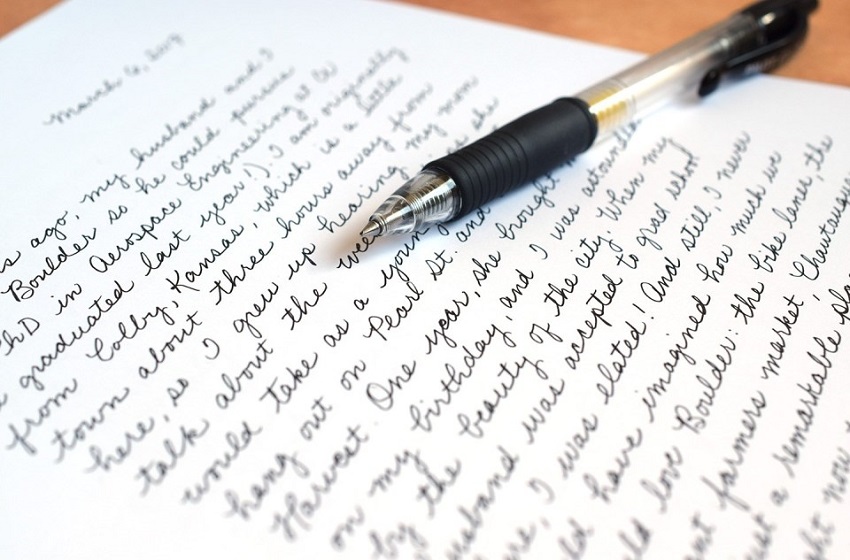 March 6,
ago, my husband and I
Boulder so he could pursue
PhD in Aerospace Engineering at CU
graduated last year!). I am originally
from Colby, Kansas, which is a little
town about three hours away from
here, so I grew up hearing my mom
talk about the she
would take as a young
hang out on Pearl St. and
Harvest. One year, she brought
on my birthday, and I was astounded
by the beauty of the city. When my
usband was accepted to grad school
re, I was elated! And still, I never
ld have imagined how much we
ld love Boulder: the bike lanes, the
farmers market, Chautauqua
a remarkable
ght now